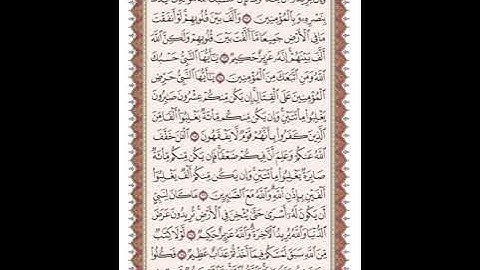 بِنَصْرِهِۦ وَبِٱلْمُؤْمِنِينَ وَأَلَّفَ بَيْنَ قُلُوبِهِمْ لَوْ أَنفَقْتَ
مَا فِى ٱلْأَرْضِ جَمِيعًا مَّآ أَلَّفْتَ بَيْنَ قُلُوبِهِمْ وَلَٰكِنَّ ٱللَّهَ
أَلَّفَ بَيْنَهُمْ إِنَّهُۥ عَزِيزٌ حَكِيمٌ يَٰٓأَيُّهَا ٱلنَّبِىُّ حَسْبُكَ
ٱللَّهُ وَمَنِ ٱتَّبَعَكَ مِنَ ٱلْمُؤْمِنِينَ يَٰٓأَيُّهَا ٱلنَّبِىُّ حَرِّضِ
ٱلْمُؤْمِنِينَ عَلَى ٱلْقِتَالِ إِن يَكُن مِّنكُمْ عِشْرُونَ صَٰبِرُونَ
يَغْلِبُوا۟ مِا۟ئَتَيْنِ وَإِن يَكُن مِّنكُم مِّا۟ئَةٌ يَغْلِبُوٓا۟ أَلْفًا مِّنَ
ٱلَّذِينَ كَفَرُوا۟ بِأَنَّهُمْ قَوْمٌ لَّا يَفْقَهُونَ ٱلْـَٰٔنَ خَفَّفَ
ٱللَّهُ عَنكُمْ وَعَلِمَ أَنَّ فِيكُمْ ضَعْفًا فَإِن يَكُن مِّنكُم مِّا۟ئَةٌ
صَابِرَةٌ يَغْلِبُوا۟ مِا۟ئَتَيْنِ وَإِن يَكُن مِّنكُمْ أَلْفٌ يَغْلِبُوٓا۟
أَلْفَيْنِ بِإِذْنِ ٱللَّهِ وَٱللَّهُ مَعَ ٱلصَّٰبِرِينَ مَا كَانَ لِنَبِىٍّ
أَن يَكُونَ لَهُۥٓ أَسْرَىٰ حَتَّىٰ يُثْخِنَ فِى ٱلْأَرْضِ تُرِيدُونَ عَرَضَ
ٱلدُّنْيَا وَٱللَّهُ يُرِيدُ ٱلْـَٔاخِرَةَ وَٱللَّهُ عَزِيزٌ حَكِيمٌ لَّوْلَا كِتَٰبٌ
مِّنَ ٱللَّهِ سَبَقَ لَمَسَّكُمْ فِيمَآ أَخَذْتُمْ عَذَابٌ عَظِيمٌ فَكُلُوا۟